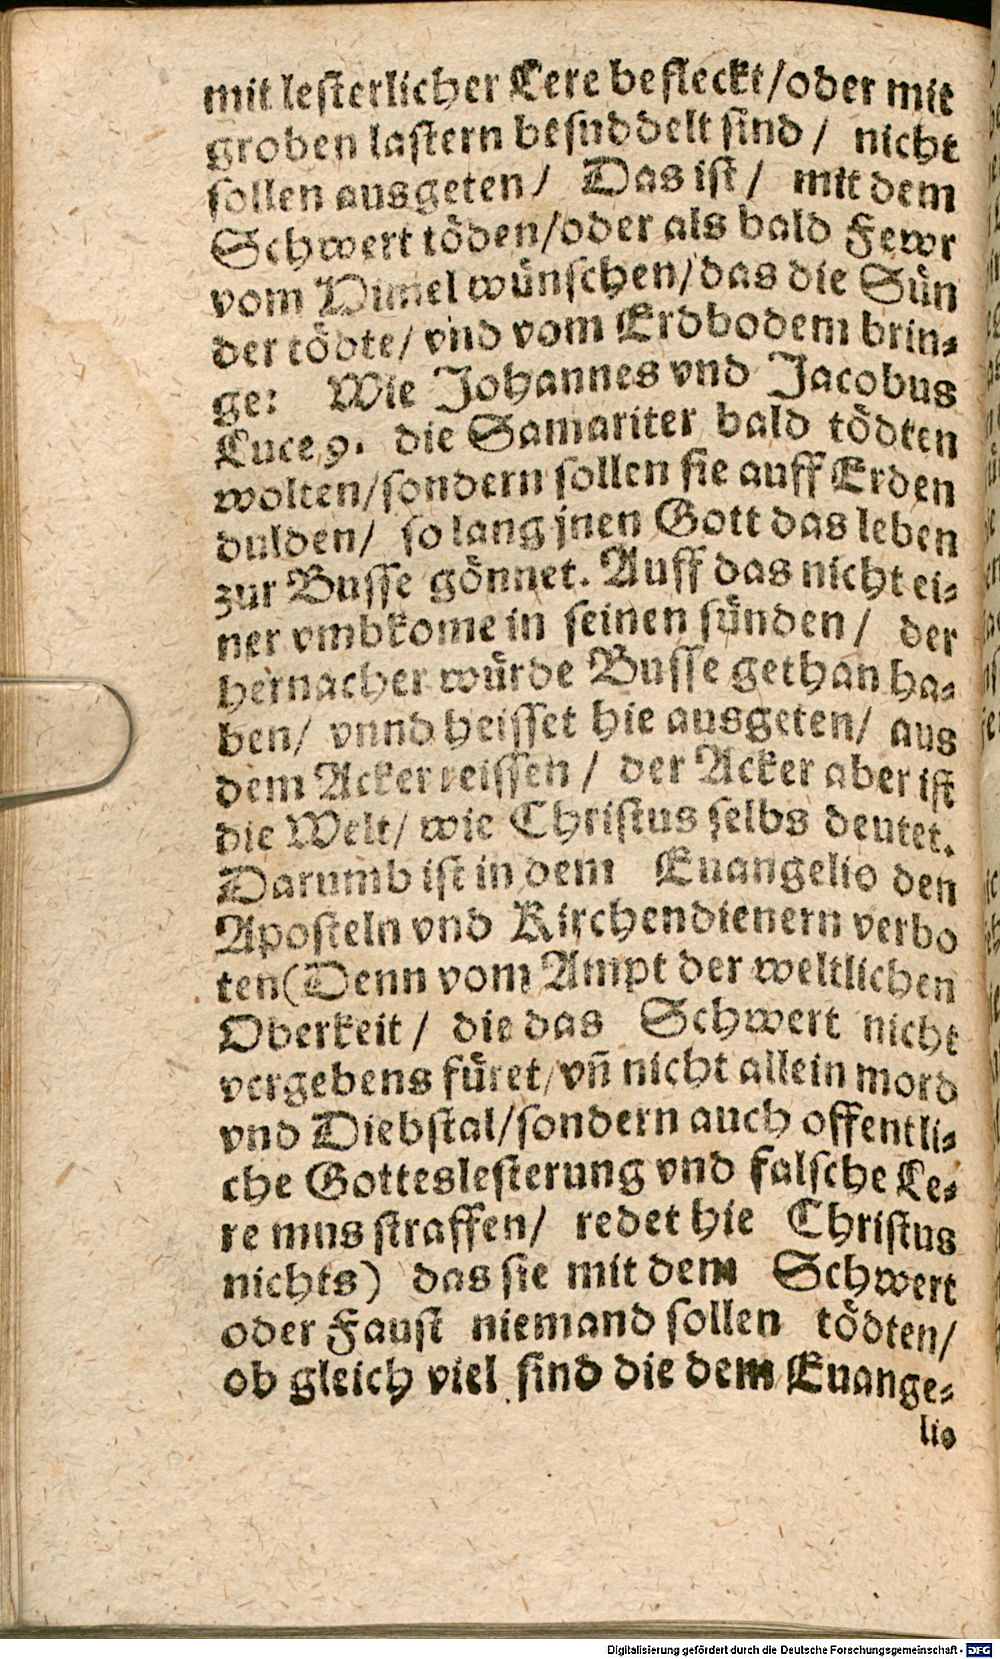 mit lesterlicher Lere befleckt/oder mit
groben lastern besuddelt sind / nicht
sollen ausgeten / Das ist / mit dem
Schwert töden/oder als bald Fewr
vom Himel wünschen/das die Sün
der tödte/ vnd vom Erdbodem brin⸗
ge: Wie Johannes vnd Jacobus
Luce 9. die Samariter bald tödten
wolten/sondern sollen sie auff Erden
dulden/ so lang jnen Gott das leben
zur Busse gönnet. Auff das nicht ei⸗
ner vmbkome in seinen sünden / der
hernacher würde Busse gethan ha⸗
ben/ vnnd heisset hie ausgeten/ aus
dem Acker reissen / der Acker aber ist
die Welt/ wie Christus selbs deutet.
Darumb ist in dem Euangelio den
Aposteln vnd Kirchendienern verbo
ten(Denn vom Ampt der weltlichen
Oberkeit / die das Schwert nicht
vergebens füret/vñ nicht allein mord
vnd Diebstal/sondern auch offentli⸗
che Gotteslesterung vnd falsche Le⸗
re mus straffen/ redet hie Christus
nichts) das sie mit dem Schwert
oder Faust niemand sollen tödten/
ob gleich viel sind die dem Euange⸗
lio
Digitalisierung gefördert durch die Deutsche Forschungsgemeinschaft - DFG